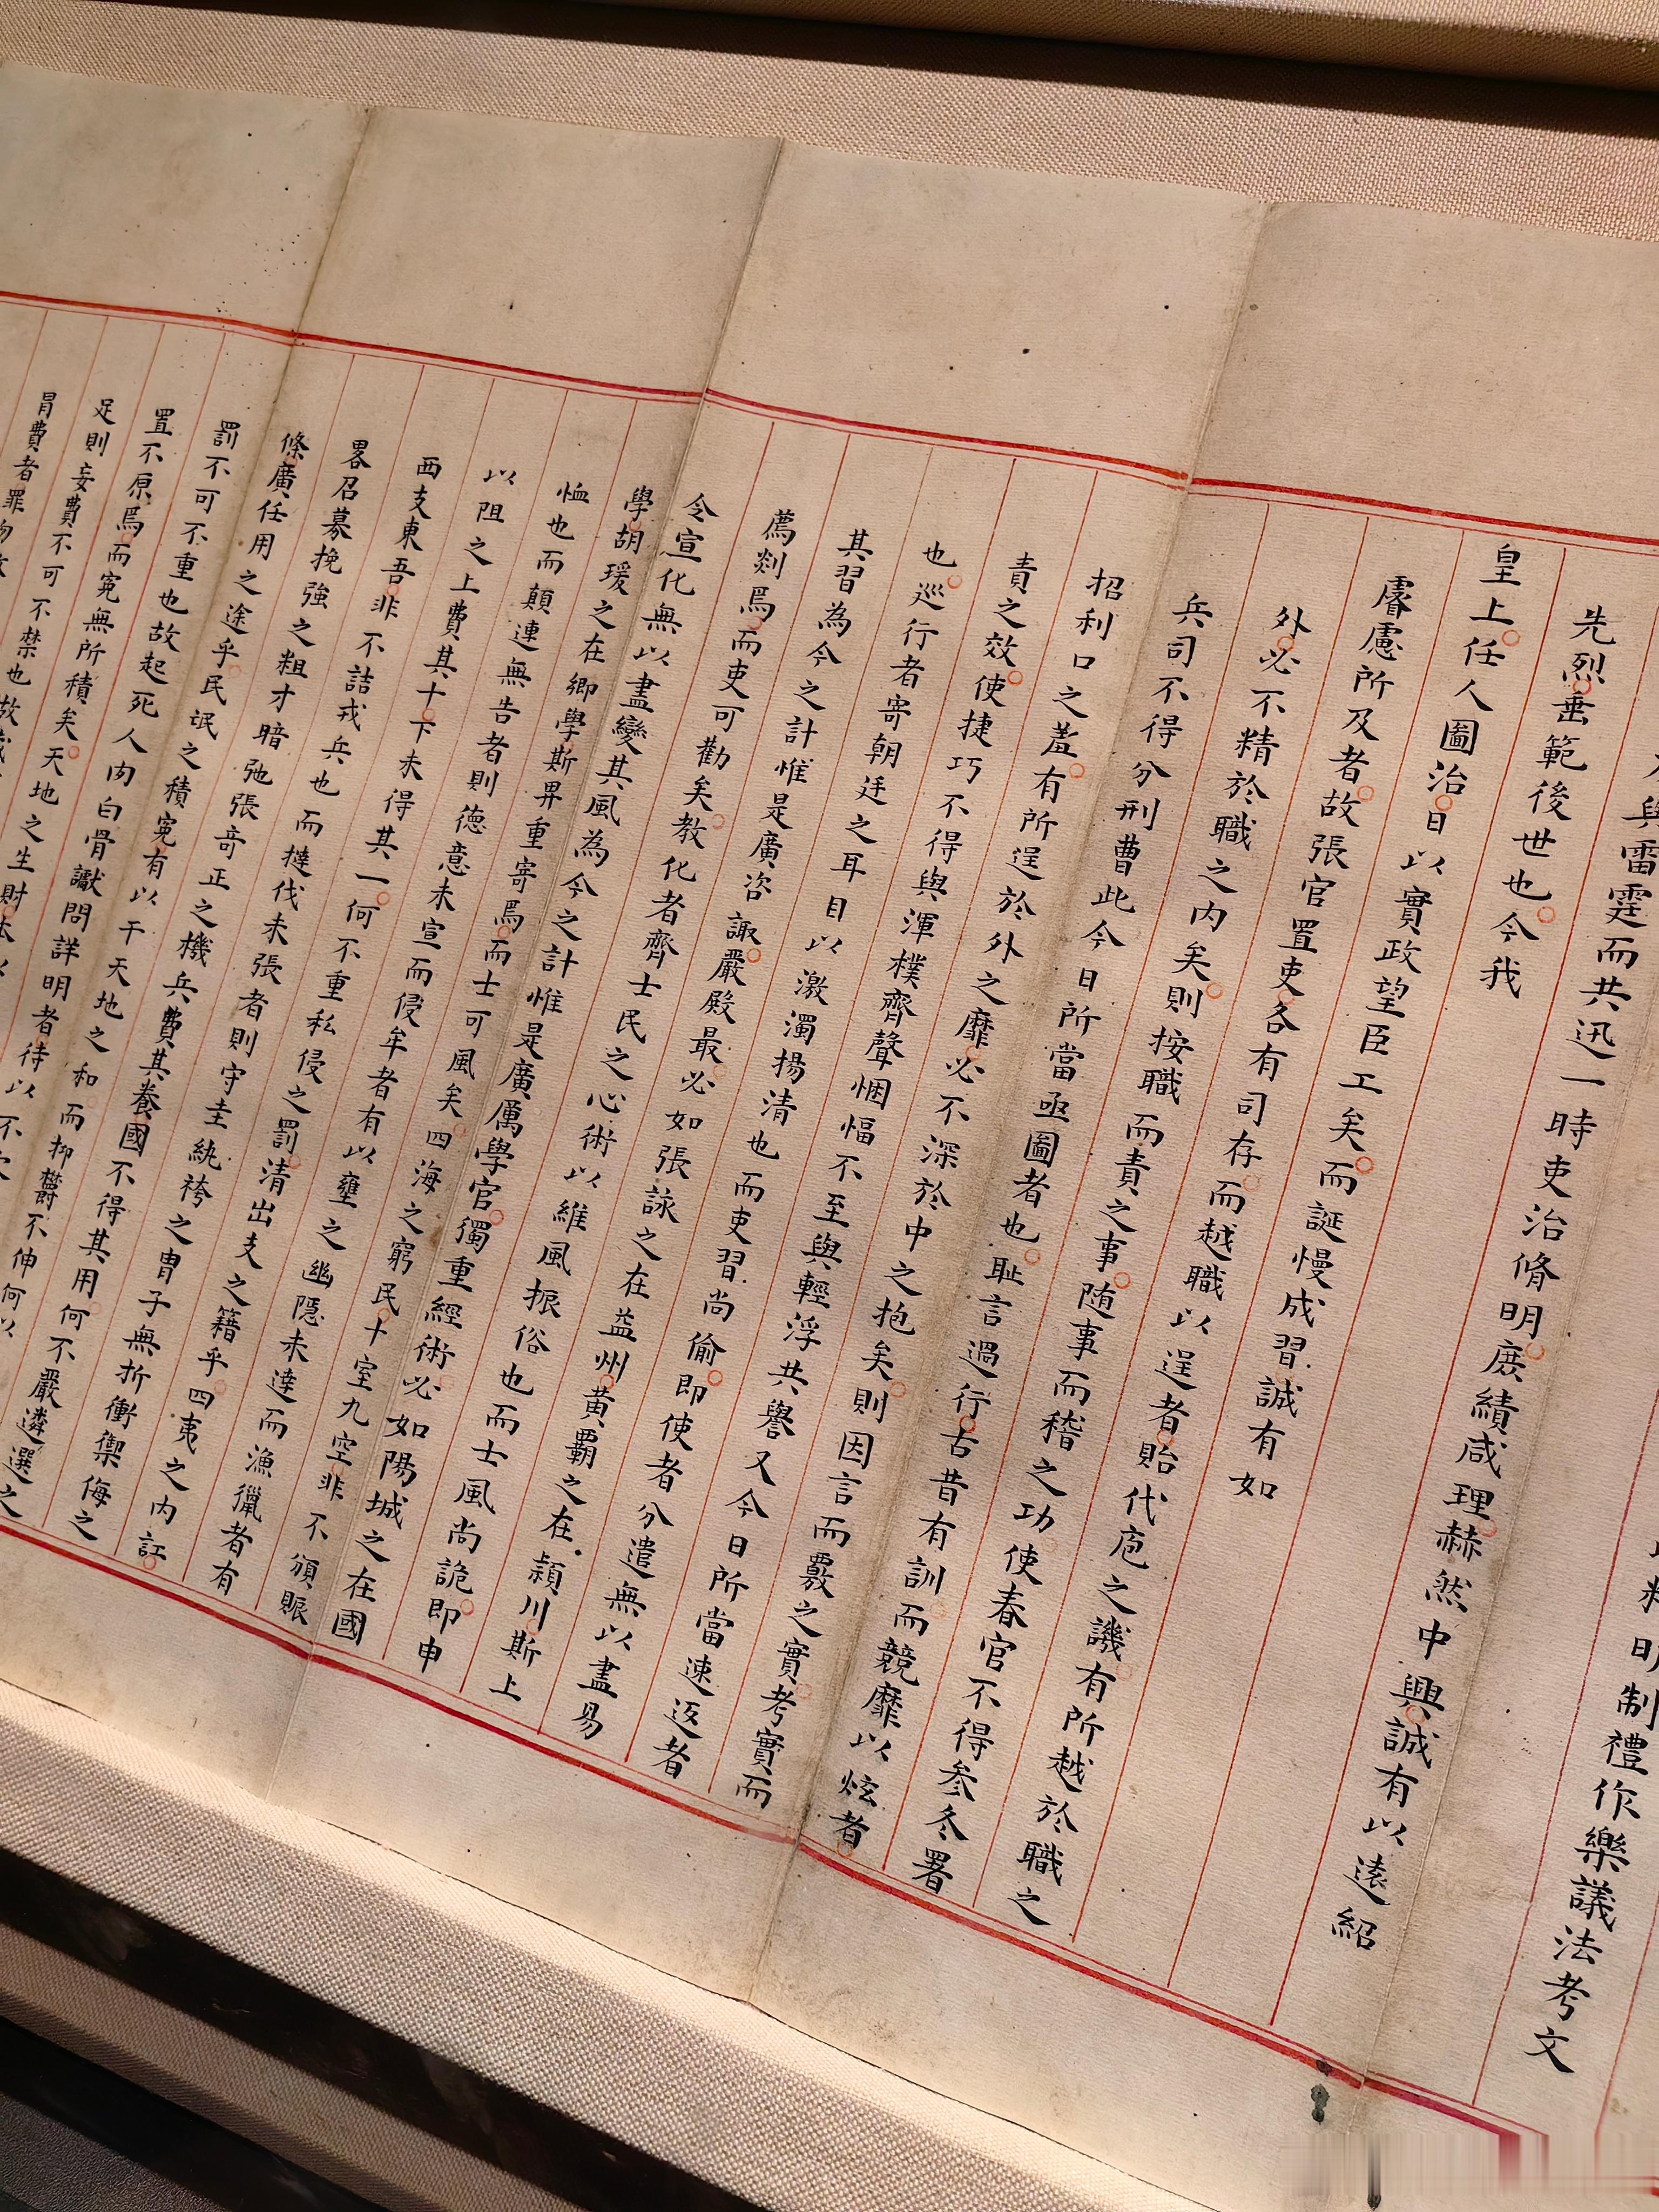 與雷霆而共迅一時吏治脩明庶績咸理赫然中興誠有以遠紹
先烈垂範後世也今我
皇上任人圖治日以實政望臣工矣而誕慢成習誠有如
睿慮所及者故張官置吏各有司存而越職以逞者貽代庖之譏有所越於職之
外必不精於職之內矣則按職而責之事随事而稽之功使春官不得參冬署
兵司不得分刑曹此今日所當亟圖者也耻言過行古昔有訓而競靡以炫者
招利口之羞有所逞於外之靡必不深於中之抱矣則因言而覈之實考實而
責之效使捷巧不得與渾樸齊聲悃愊不至與輕浮共譽又今日所當速返者
也巡行者寄朝廷之耳目以激濁揚清也而吏習尚偷即使者分遣無以盡易
其習為今之計惟是廣咨諏嚴殿最必如張詠之在益州黃霸之在潁川斯上
薦剡焉而吏可勸矣教化者齊士民之心術以維風振俗也而士風尚詭即申
令宣化無以盡變其風為今之計惟是廣厲學官獨重經術必如陽城之在國
學胡瑗之在鄉學斯畀重寄焉而士可風矣四海之窮民十室九空非不頒賑
恤也而顛連無告者則德意未宣而侵牟者有以壅之幽隱未達而漁獵者有
以阻之上費其十下未得其一何不重私侵之罰清出支之籍乎四夷之內訌
西支東吾非不詰戎兵也而撻伐未張者則守圭紈袴之胄子無折衝禦侮之
畧召募挽強之粗才暗弛張奇正之機兵費其養國不得其用何不嚴遴選之
條廣任用之途乎民氓之積冤有以干天地之和而抑鬱不伸何以
罰不可不重也故起死人肉白骨讞問詳明者待以不
置不原焉而冤無所積矣天地之生財本以
足則妄費不可不禁也故
冒費者罪勿